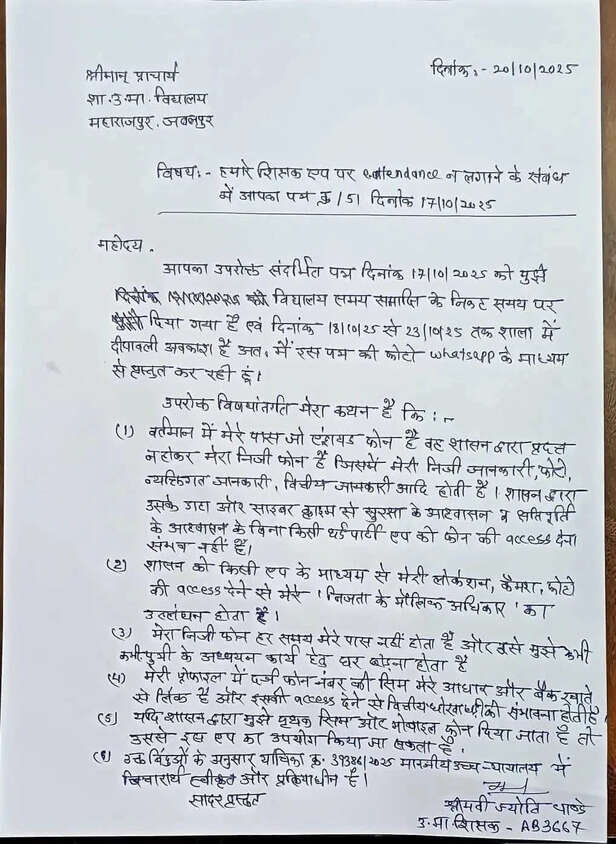 श्रीमान् प्राचार्य
दिनांक:- 20/10/2025
शा.उ.मा. विद्यालय
महाराजपुर, जबलपुर
विषय:- हमारे शिक्षक एप पर eattendance न लगाने के संबंध
में आपका पत्र क्र /51 दिनांक 17/10/2025
महोदय,
आपका उपरोक्त संदर्भित पत्र दिनांक 17/10/2025 को मुझे
विद्यालय समय समाप्ति के निकट समय पर
दिया गया है एवं दिनांक 18/10/25 से 23/10/25 तक शाला में
दीपावली अवकाश है अतः मैं इस पत्र की फोटो whatsapp के माध्यम
से प्रस्तुत कर रही हूं।
उपरोक्त विषयांतर्गत मेरा कथन है कि :-
(1) वर्तमान में मेरे पास जो एंड्रायड फोन है वह शासन द्वारा प्रदत्त
न होकर मेरा निजी फोन है जिसमें मेरी निजी जानकारी, फोटो,
व्यक्तिगत जानकारी, वित्तीय जानकारी आदि होती है। शासन द्वारा
उसके डाटा और साइबर क्राइम से सुरक्षा के आश्वासन व क्षतिपूर्ति
के आश्वासन के बिना किसी थर्ड पार्टी एप को फोन की access देना
संभव नहीं है।
(2) शासन को किसी एप के माध्यम से मेरी लोकेशन, कैमरा, फोटो
की access देने से मेरे 'निजता के मौलिक अधिकार' का
उल्लंघन होता है।
(3) मेरा निजी फोन हर समय मेरे पास नहीं होता है और इसे मुझे कभी
कभी पुत्री के अध्ययन कार्य हेतु घर छोड़ना होता है
(4) मेरी प्रोफाइल में दर्ज फोन नंबर की सिम मेरे आधार और बैंक खाते
से लिंक है और इसकी access देने से वित्तीय धोखाधड़ी की संभावना होती है।
(5) यदि शासन द्वारा मुझे पृथक सिम और मोबाइल फोन दिया जाता है तो
उससे इस एप का उपयोग किया जा सकता है।
(6) उक्त बिंदुओं के अनुसार याचिका क्र. 39386/2025 माननीय उच्च न्यायालय में
विचारार्थ स्वीकृत और प्रक्रियाधीन है।
सादर प्रस्तुत
श्रीमती ज्योति पाण्डे
उ.मा. शिक्षक - AB3667